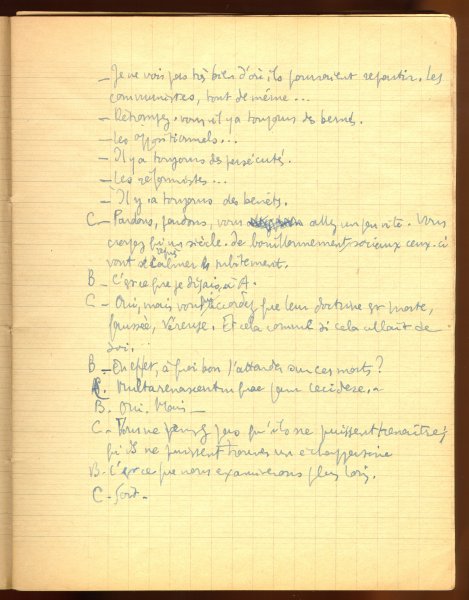 – Je ne vois pas très bien d'où ils pourraient repartir. Les
communistes, tout de même...
– Détrompez-vous, il y a toujours des bernés.
– Les oppositionnels...
– Il y a toujours des persécutés.
– Les réformistes...
– Il y a toujours des benêts.
C – Pardons, pardons, vous allez un peu vite. Vous
croyez qu'un siècle de bouillonnement sociaux ceux-ci
vont se calmer subitement.
B – C'est ce que je disais, à A.
C – Oui, mais vous accordez que leur doctrine est morte,
faussée, véreuse. Et cela comme si cela allait de
soi...
B – En effet, à quoi bon s'attarder sur ces morts?
C. Multa renascentur quae jam cecidere.
B. Oui. Mais –
C – Vous ne pensez pas qu'ils ne puissent renaître,
qu'ils ne puissent trouver un échappatoire
B – C'est ce que nous examinerons plus loin.
C – Soit –